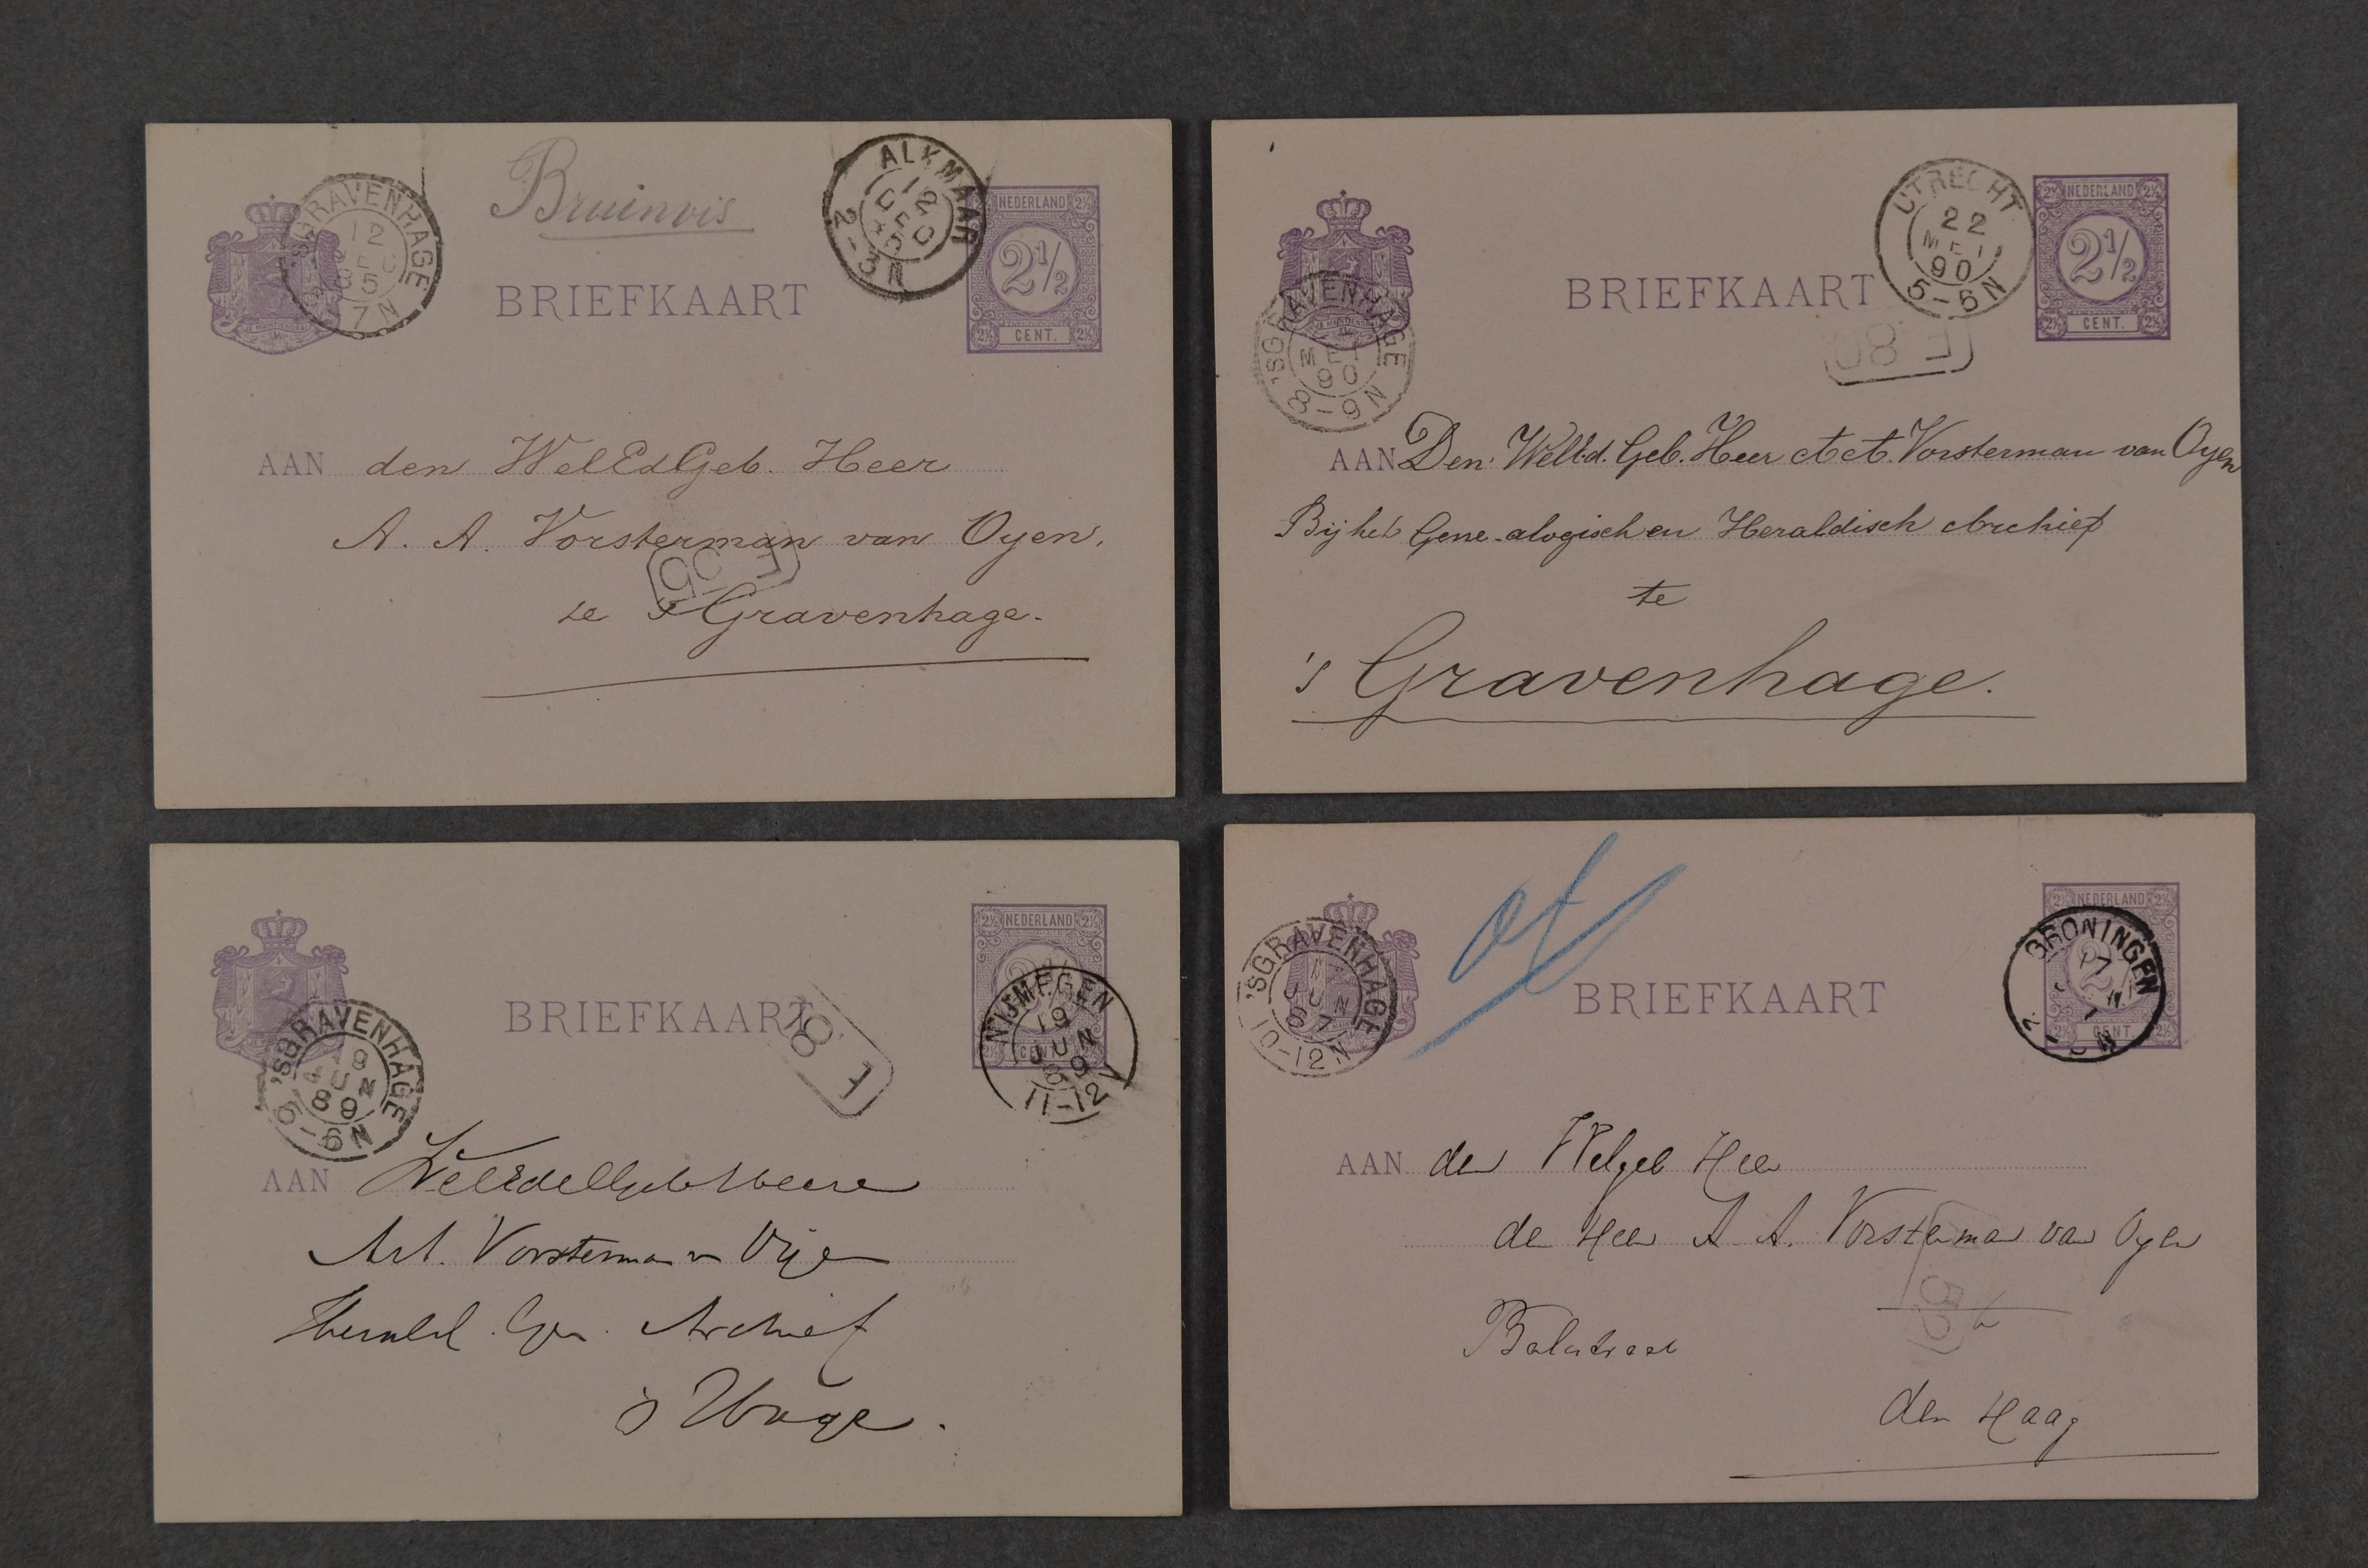 Bruinvis
'SGRAVENHAGE
12
85
7N
ALKMAAR
12
DEC
85
2-3N
NEDERLAND
2½
CENT.
BRIEFKAART
AAN den WelEdGeb. Heer
A. A. Vorsterman van Oyen,
te 's Gravenhage.
UTRECHT
22
MEI
90
5-6N
NEDERLAND
2½
CENT.
BRIEFKAART
'SGRAVENHAGE
MEI
90
8-9N
F 80
AAN Den WelEd. Geb. Heer A A. Vorsterman van Oyen
Bij het Gene-alogisch en Heraldisch Archief
te
's Gravenhage.
NEDERLAND
2½
CENT
BRIEFKAART
F 81
NIJMEGEN
19
JUN
89
11-12
'SGRAVENHAGE
19
JUN
89
5-6N
AAN WelEdelGeb Heere
A.A. Vorsterman v Oije
Herald. Gen. Archief
's Hage.
of
NEDERLAND
2½
CENT.
BRIEFKAART
GRONINGEN
'SGRAVENHAGE
JUN
87
10-12N
AAN den Welgeb Heer
den Heer A. A. Vorsterman van Oyen
te
den Haag